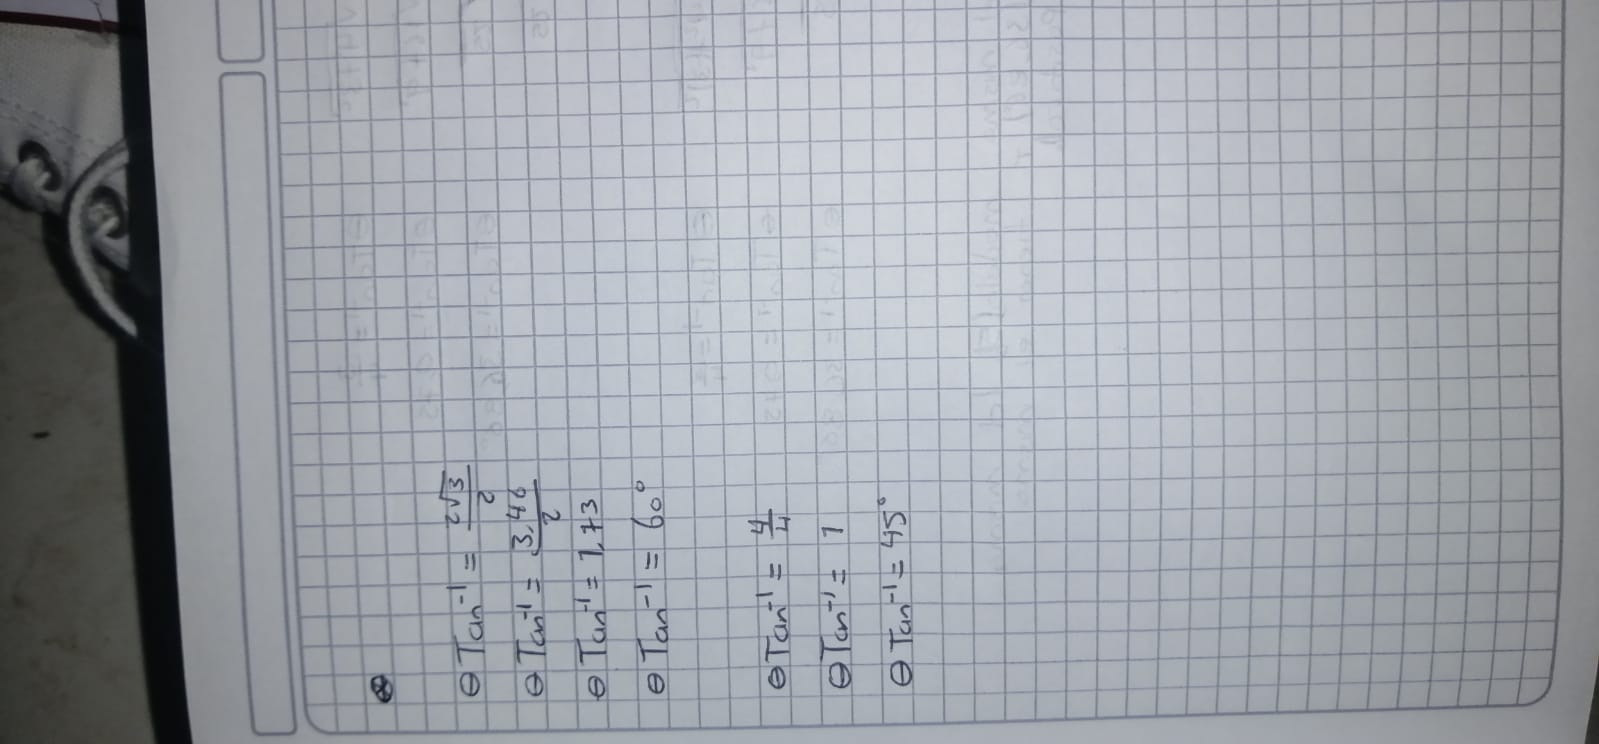 θ Tan⁻¹ = 2√3/2
θ Tan⁻¹ = 3,46/2
θ Tan⁻¹ = 1,73
θ Tan⁻¹ = 60°
θ Tan⁻¹ = 4/4
θ Tan⁻¹ = 1
θ Tan⁻¹ = 45°